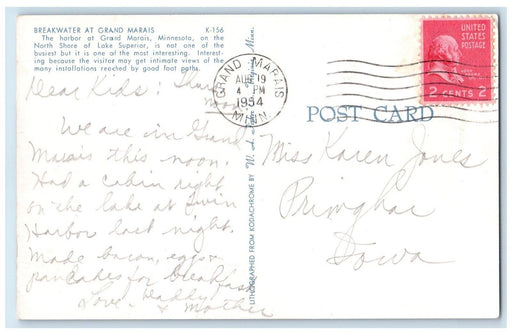 BREAKWATER AT GRAND MARAIS K-156
The harbor at Grand Marais, Minnesota, on the
North Shore of Lake Superior, is not one of the
busiest but it is one of the most interesting. Interest-
ing because the visitor may get intimate views of the
many installations reached by good foot paths.
Dear Kids:
We are in Grand
Marais this noon.
Had a cabin right
on the lake at Twin
Harbor last night.
Made bacon, eggs &
pancakes for breakfast
Love - Daddy
& Mother
LITHOGRAPHED FROM KODACHROME BY
GRAND MARAIS
AUG 19
4 PM
1954
MINN.
UNITED
STATES
POSTAGE
2 CENTS 2
POST CARD
Miss Karen Jones
Primghar
Iowa